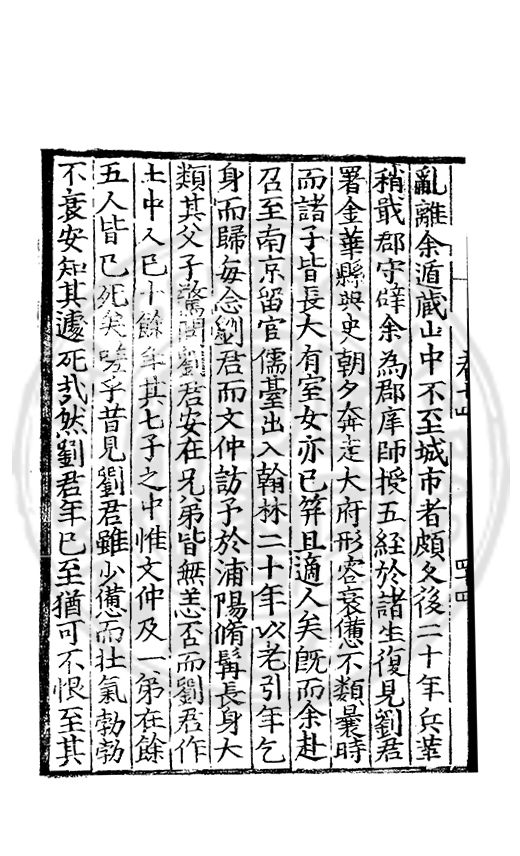 卷十四
亂離余遁藏山中不至城市者頗久後二十年兵革
稍戢郡守辟余為郡庠師授五經於諸生復見劉君
署金華縣典史朝夕奔走大府形容衰憊不類曩時
而諸子皆長大有室女亦已筓且適人矣既而余赴
召至南京留官儒臺出入翰林二十年以老引年乞
身而歸每念劉君而文仲訪予於浦陽脩髯長身大
類其父予驚問劉君安在兄弟皆無恙否而劉君作
土中人已十餘年其七子之中惟文仲及一弟在餘
五人皆已死矣嗟乎昔見劉君雖少憊而壯氣勃勃
不衰安知其遽死哉然劉君年已至猶可不恨至其